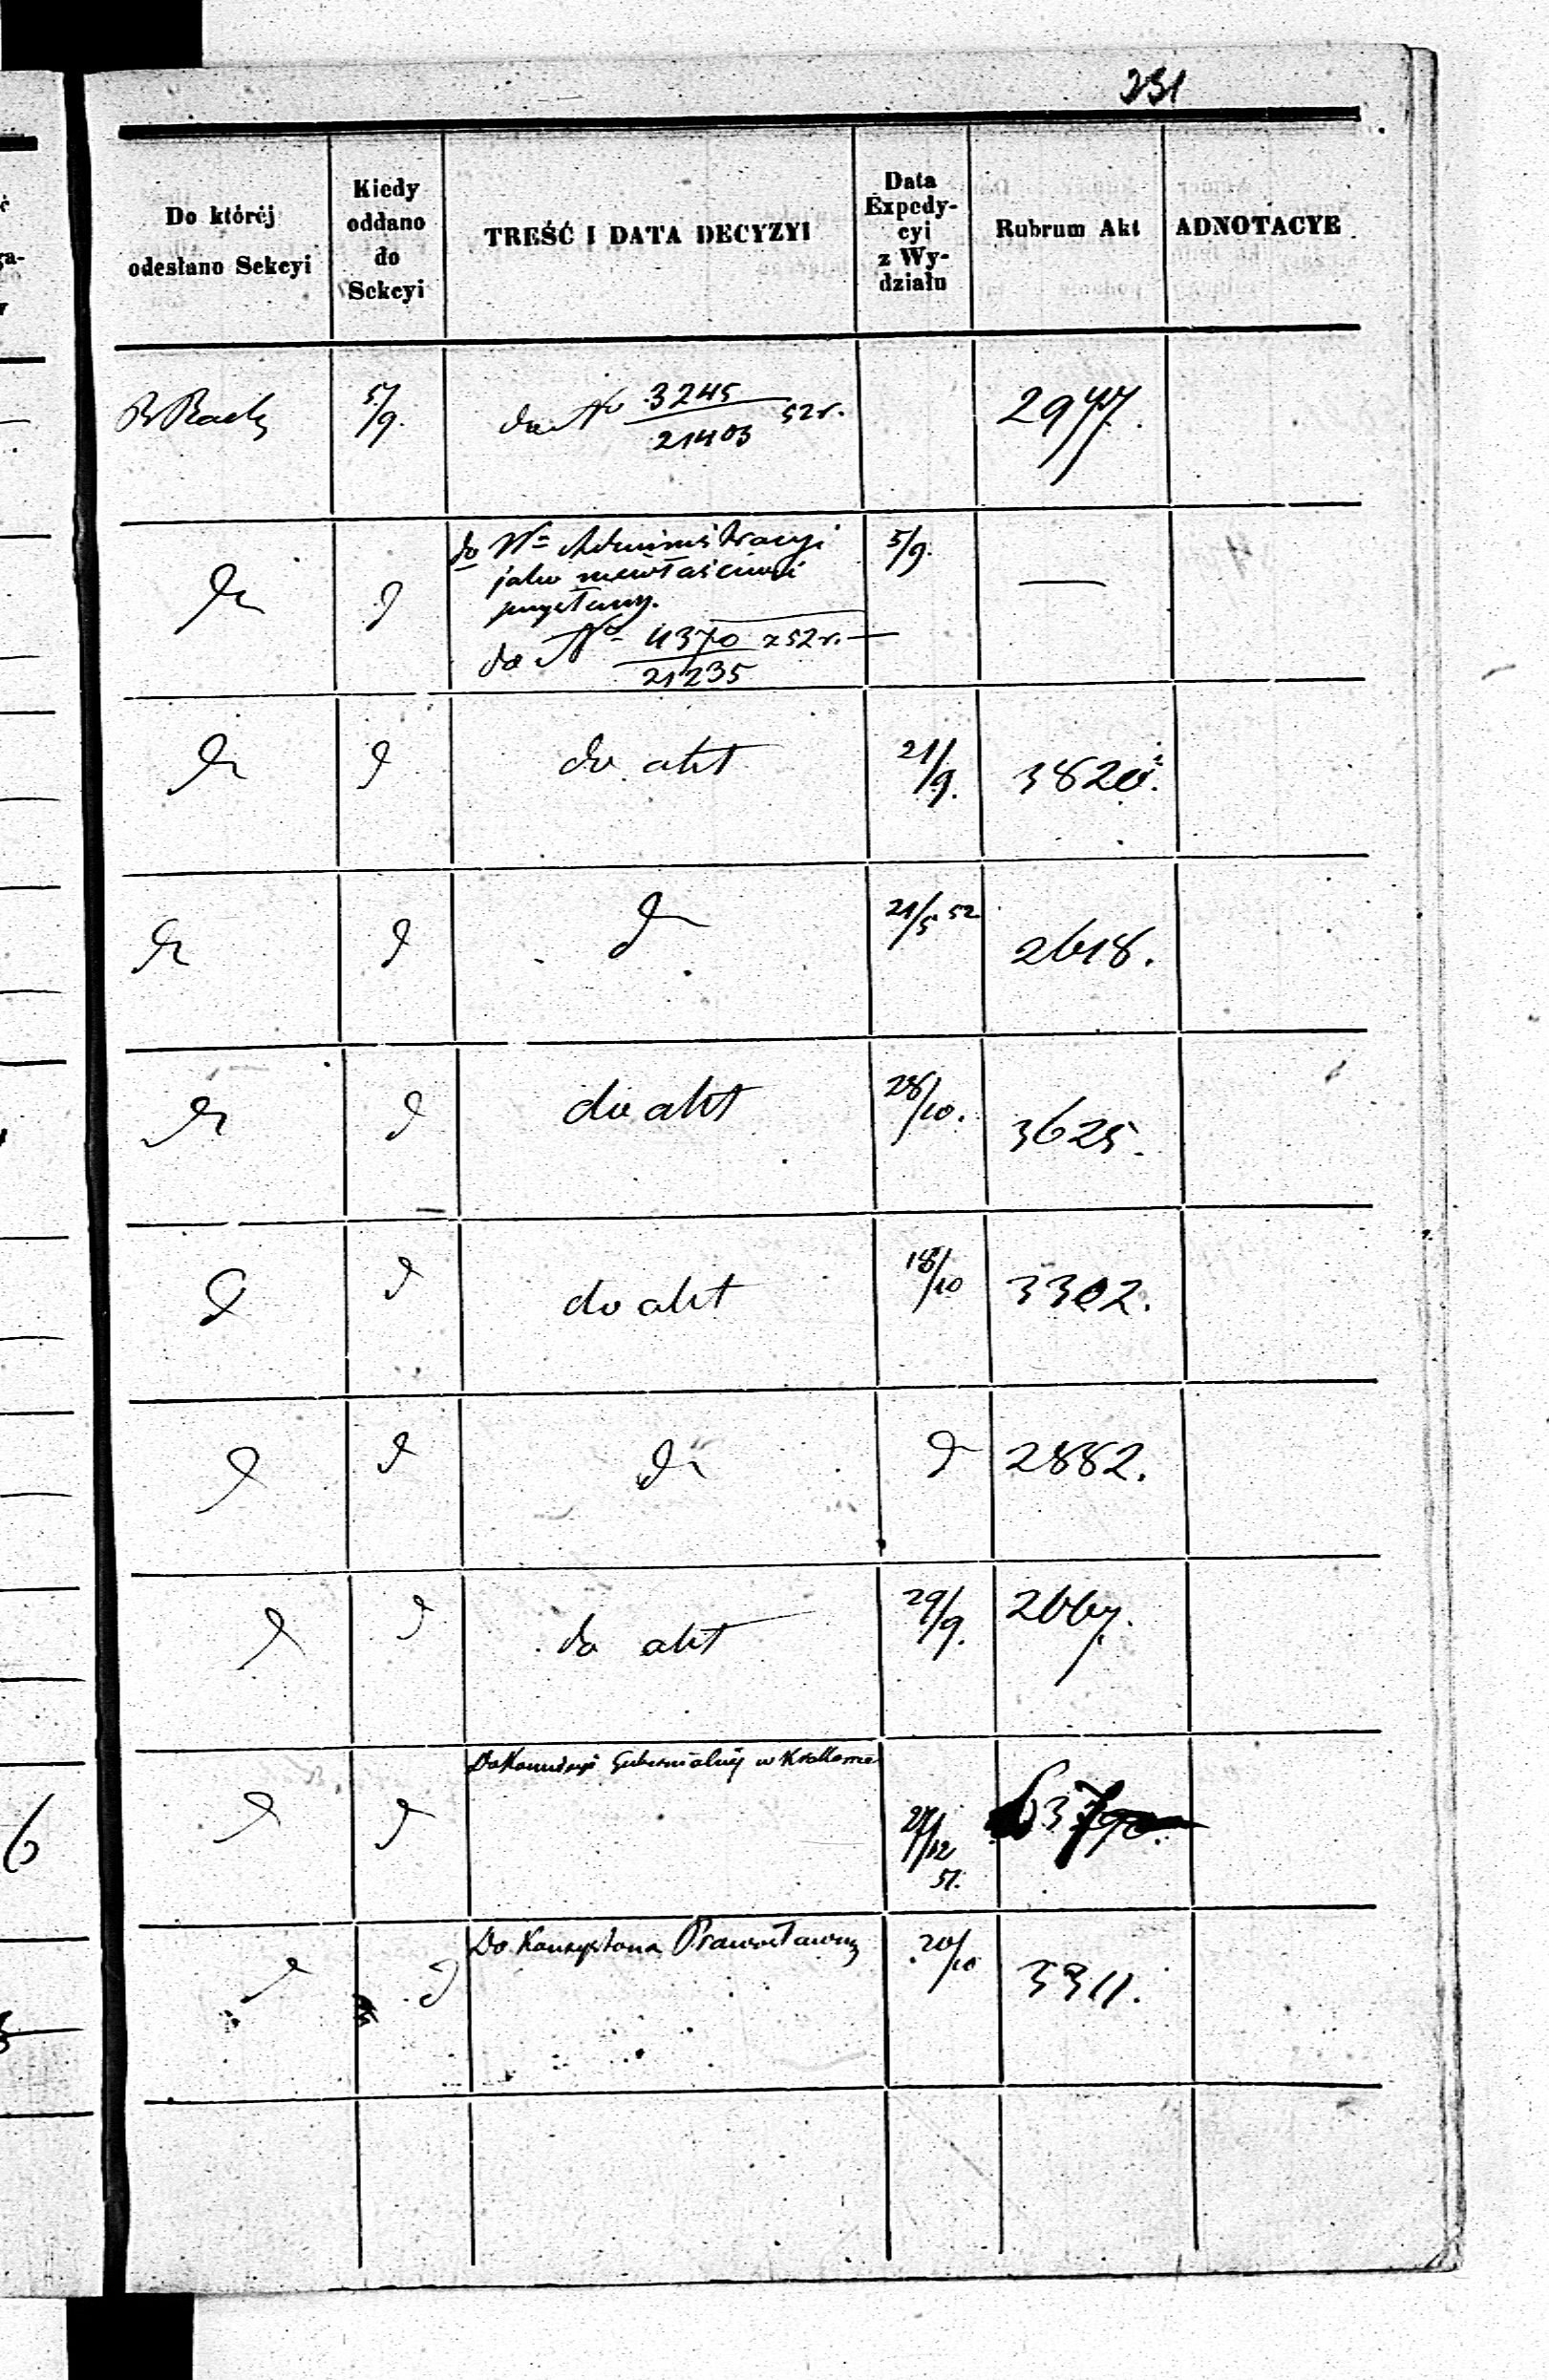 231
Do któréj
odesłano Sekcyi
Kiedy
oddano
do
Sekcyi
TREŚĆ I DATA DECYZYI
Data
Expedy-
cyi
z Wy-
działu
Rubrum Akt
ADNOTACYE
5/9.
do No 3245/21403 52 r.
2977.
do Wº Administracyi
jako niewłaściwie
przysłany.
do No 4370/21235 z 52 r.
5/9.
—
do akt
21/9.
3820.
21/5 52
2618.
do akt
28/10.
3625.
do akt
18/10
3302.
2882.
do akt
29/9.
2667.
Do Kommisyi Gubernialnéj w
27/12
51.
Do Konsystorza Prawosławnego
20/10
3311.
6